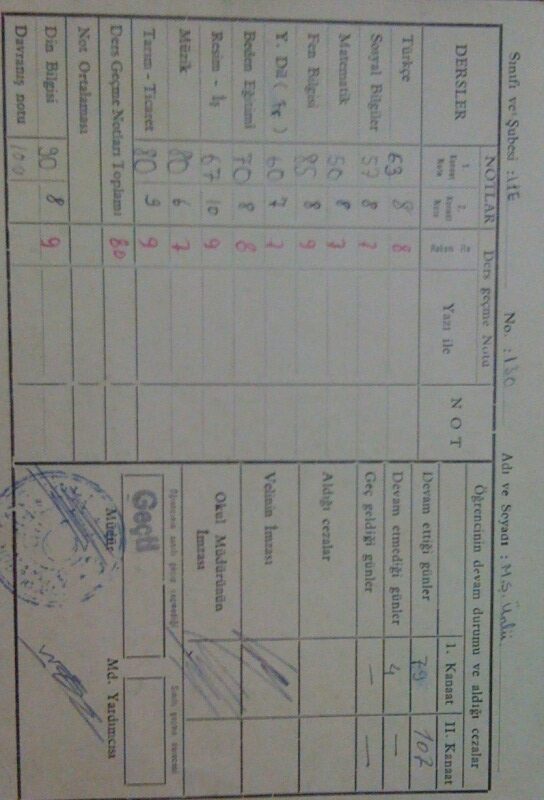 Sınıfı ve Şubesi : No. : 130 Adı ve Soyadı : M.Ş. Ünlü
DERSLER NOTLAR Ders geçme Notu NOT
1. Kanaat Notu 2. Kanaat Notu Rakam ile Yazı ile
Türkçe 63 8 8
Sosyal Bilgiler 57 8 7
Matematik 50 8 7
Fen Bilgisi 85 8 9
Y. Dil ( ) 60 7 7
Beden Eğitimi 70 8 8
Resim - İş 67 10 9
Müzik 80 6 7
Tarım - Ticaret 80 9 9
Ders Geçme Notları Toplamı 80
Not Ortalaması
Din Bilgisi 90 8 9
Davranış notu 100
Öğrencinin devam durumu ve aldığı cezalar
I. Kanaat II. Kanaat
Devam ettiği günler 79 107
Devam etmediği günler 4 —
Geç geldiği günler — —
Aldığı cezalar
Velinin İmzası
Okul Müdürünün İmzası
Geçti
Müdür Md. Yardımcısı